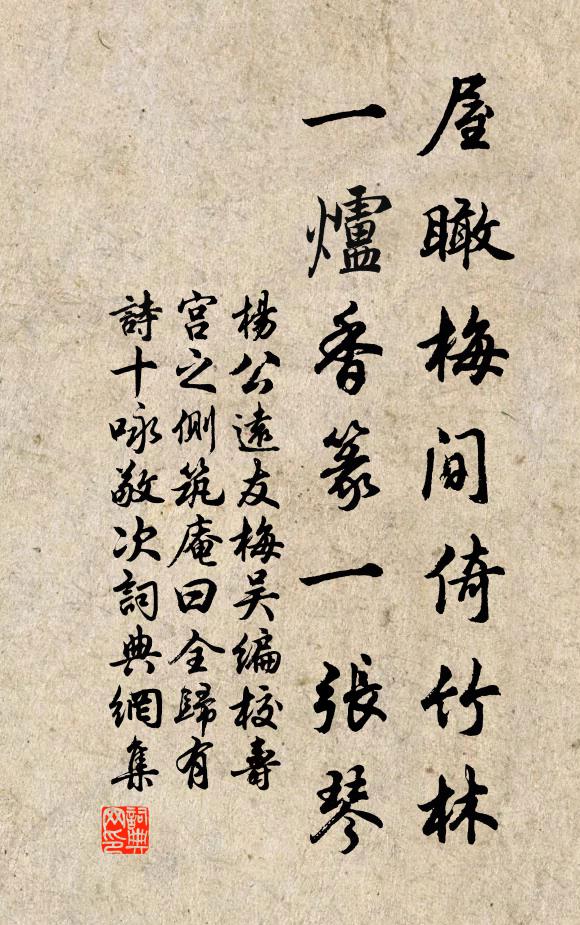 屋瞰梅間倚竹林
一爐香篆一張琴
楊公遠友梅吴編校壽
宮之側筑庵曰全歸有
詩十咏敬次詞典網集
詞典网印